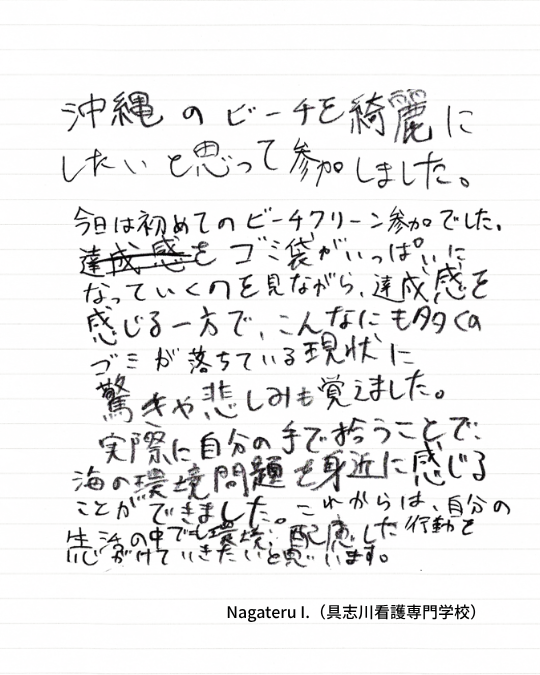 沖縄のビーチを綺麗に
したいと思って参加しました。
今日は初めてのビーチクリーン参加でした。
達成感をゴミ袋がいっぱいに
なっていくのを見ながら、達成感を
感じる一方で、こんなにも多くの
ゴミが落ちている現状に
驚きや悲しみも覚えました。
実際に自分の手で拾うことで、
海の環境問題を身近に感じる
ことができました。これからは、自分の
生活の中でも環境に配慮した行動を
心がけていきたいと思います。
Nagateru I.（具志川看護専門学校）